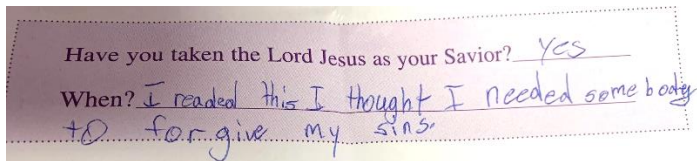 Have you taken the Lord Jesus as your Savior? Yes
When? I readed this I thought I needed somebody
to forgive my sins.